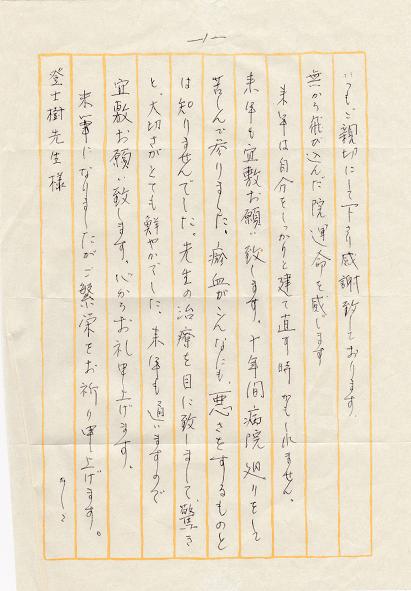 -1-
いつも、ご親切にして下さり感謝致しております。
無から飛び込んだ院運命を感じます
来年は自分をしっかりと建て直す時かもしれません。
来年も宜敷お願い致します。十年間病院廻りをして
苦しんで参りました。瘀血がこんなにも、悪さをするものと
は知りませんでした。先生の治療を目に致しまして、驚き
と、大切さがとても鮮やかでした。来年も通いますので
宜敷お願い致します。心からお礼申上げます。
末筆になりましたがご繁栄をお祈り申上げます。
登士樹先生様